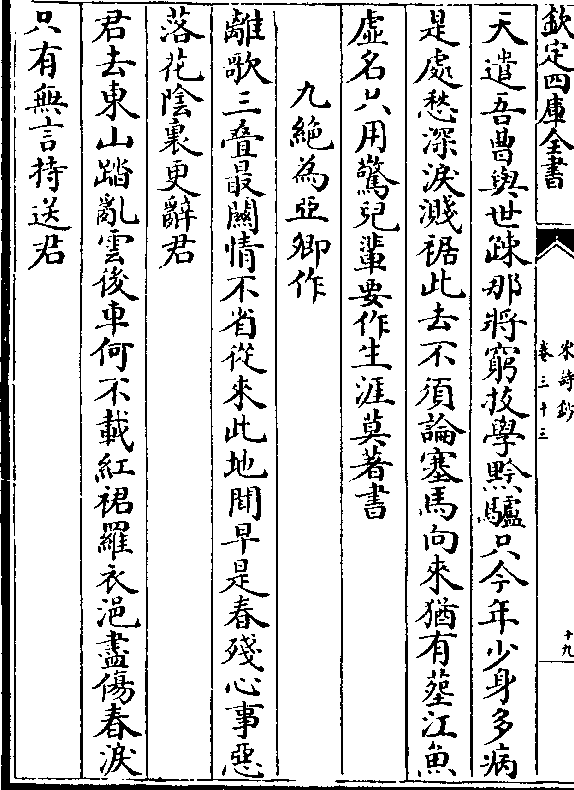 欽定四庫全書
宋詩鈔
卷三十三
十九
天遣吾曹與世疎那將窮技學黔驢只今年少身多病
是處愁深淚濺裾此去不須論塞馬向來猶有葬江魚
虛名只用驚兒輩要作生涯莫著書
九絶為亞卿作
離歌三疊最闗情不省從來此地聞早是春殘心事惡
落花陰裏更辭君
君去東山踏亂雲後車何不載紅裙羅衣浥盡傷春淚
只有無言持送君